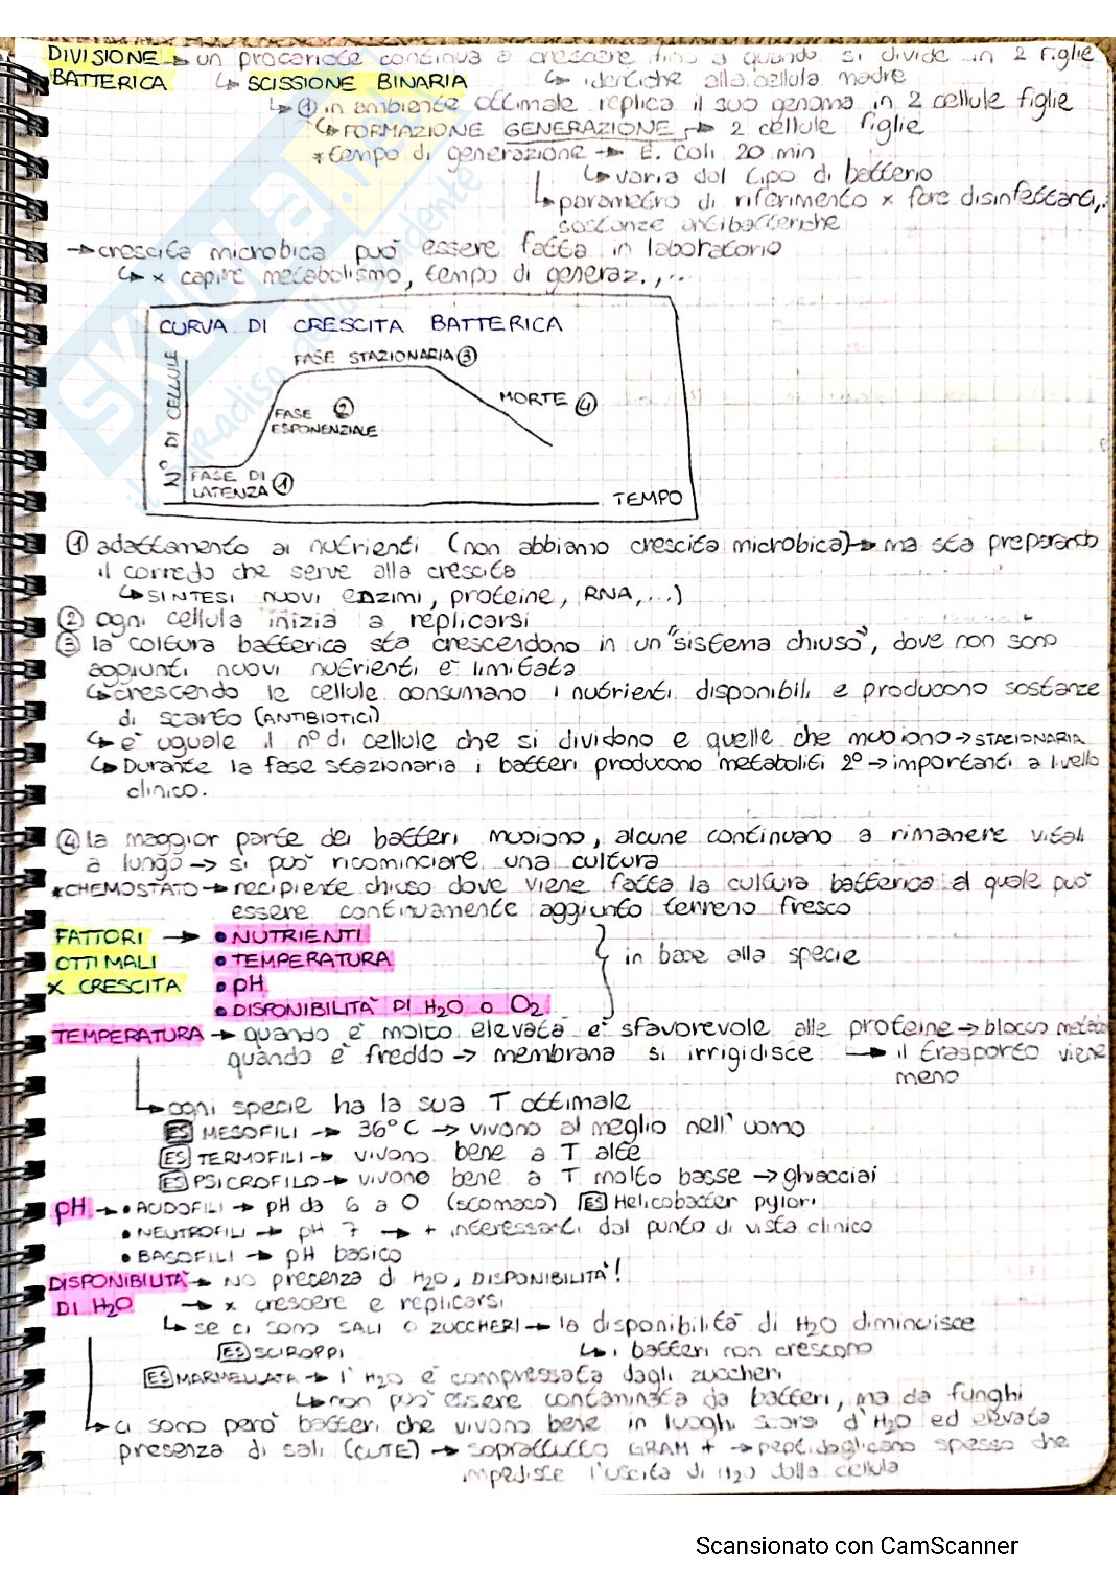 DIVISIONE → un procariote continua a crescere fino a quando si divide in 2 figlie
BATTERICA ↳ SCISSIONE BINARIA ↳ identiche alla cellula madre
↳ ① in ambiente ottimale replica il suo genoma in 2 cellule figlie
↳ FORMAZIONE GENERAZIONE → 2 cellule figlie
* tempo di generazione → E. Coli 20 min
↳ varia dal tipo di batterio
↳ parametro di riferimento x fare disinfettanti,
sostanze antibatteriche
→ crescita microbica può essere fatta in laboratorio
↳ x capire metabolismo, tempo di generaz., ...
CURVA DI CRESCITA BATTERICA
FASE STAZIONARIA ③
N° DI CELLULE
MORTE ④
FASE ②
ESPONENZIALE
FASE DI
LATENZA ①
TEMPO
① adattamento ai nutrienti (non abbiamo crescita microbica) → ma sta preparando
il corredo che serve alla crescita
↳ SINTESI nuovi enzimi, proteine, RNA, ...)
② ogni cellula inizia a replicarsi
③ la coltura batterica sta crescendono in un "sistema chiuso", dove non sono
aggiunti nuovi nutrienti e' limitata
↳ crescendo le cellule consumano i nutrienti disponibili e producono sostanze
di scarto (ANTIBIOTICI)
↳ e' uguale il n° di cellule che si dividono e quelle che muoiono → STAZIONARIA
↳ Durante la fase stazionaria i batteri producono metaboliti 2° → importanti a livello
clinico.
④ la maggior parte dei batteri muoiono, alcune continuano a rimanere vitali
a lungo → si può ricominciare una cultura
* CHEMOSTATO → recipiente chiuso dove viene fatta la cultura batterica al quale può
essere continuamente aggiunto terreno fresco
FATTORI → • NUTRIENTI
OTTIMALI • TEMPERATURA } in base alla specie
X CRESCITA • pH
• DISPONIBILITÀ DI H2O O O2
TEMPERATURA → quando e' molto elevata e' sfavorevole alle proteine → blocco metab
quando e' freddo → membrana si irrigidisce → il trasporto viene
meno
↳ ogni specie ha la sua T ottimale
ES MESOFILI → 36°C → vivono al meglio nell'uomo
ES TERMOFILI → vivono bene a T alte
ES PSICROFILO → vivono bene a T molto basse → ghiacciai
pH → • ACIDOFILI → pH da 6 a 0 (stomaco) ES Helicobacter pylori
• NEUTROFILI → pH 7 → + interessanti dal punto di vista clinico
• BASOFILI → pH basico
DISPONIBILITÀ → NO presenza di H2O, DISPONIBILITÀ!
DI H2O → x crescere e replicarsi
↳ se ci sono SALI O ZUCCHERI → la disponibilità di H2O diminuisce
ES SCIROPPI ↳ i batteri non crescono
ES MARMELLATA → l'H2O e' compressata dagli zuccheri
↳ non può essere contaminata da batteri, ma da funghi
↳ ci sono però batteri che vivono bene in luoghi scarsi d'H2O ed elevata
presenza di sali (CUTE) → soprattutto GRAM + → peptidoglicano spesso che
impedisce l'uscita di H2O dalla cellula
Scansionato con CamScanner